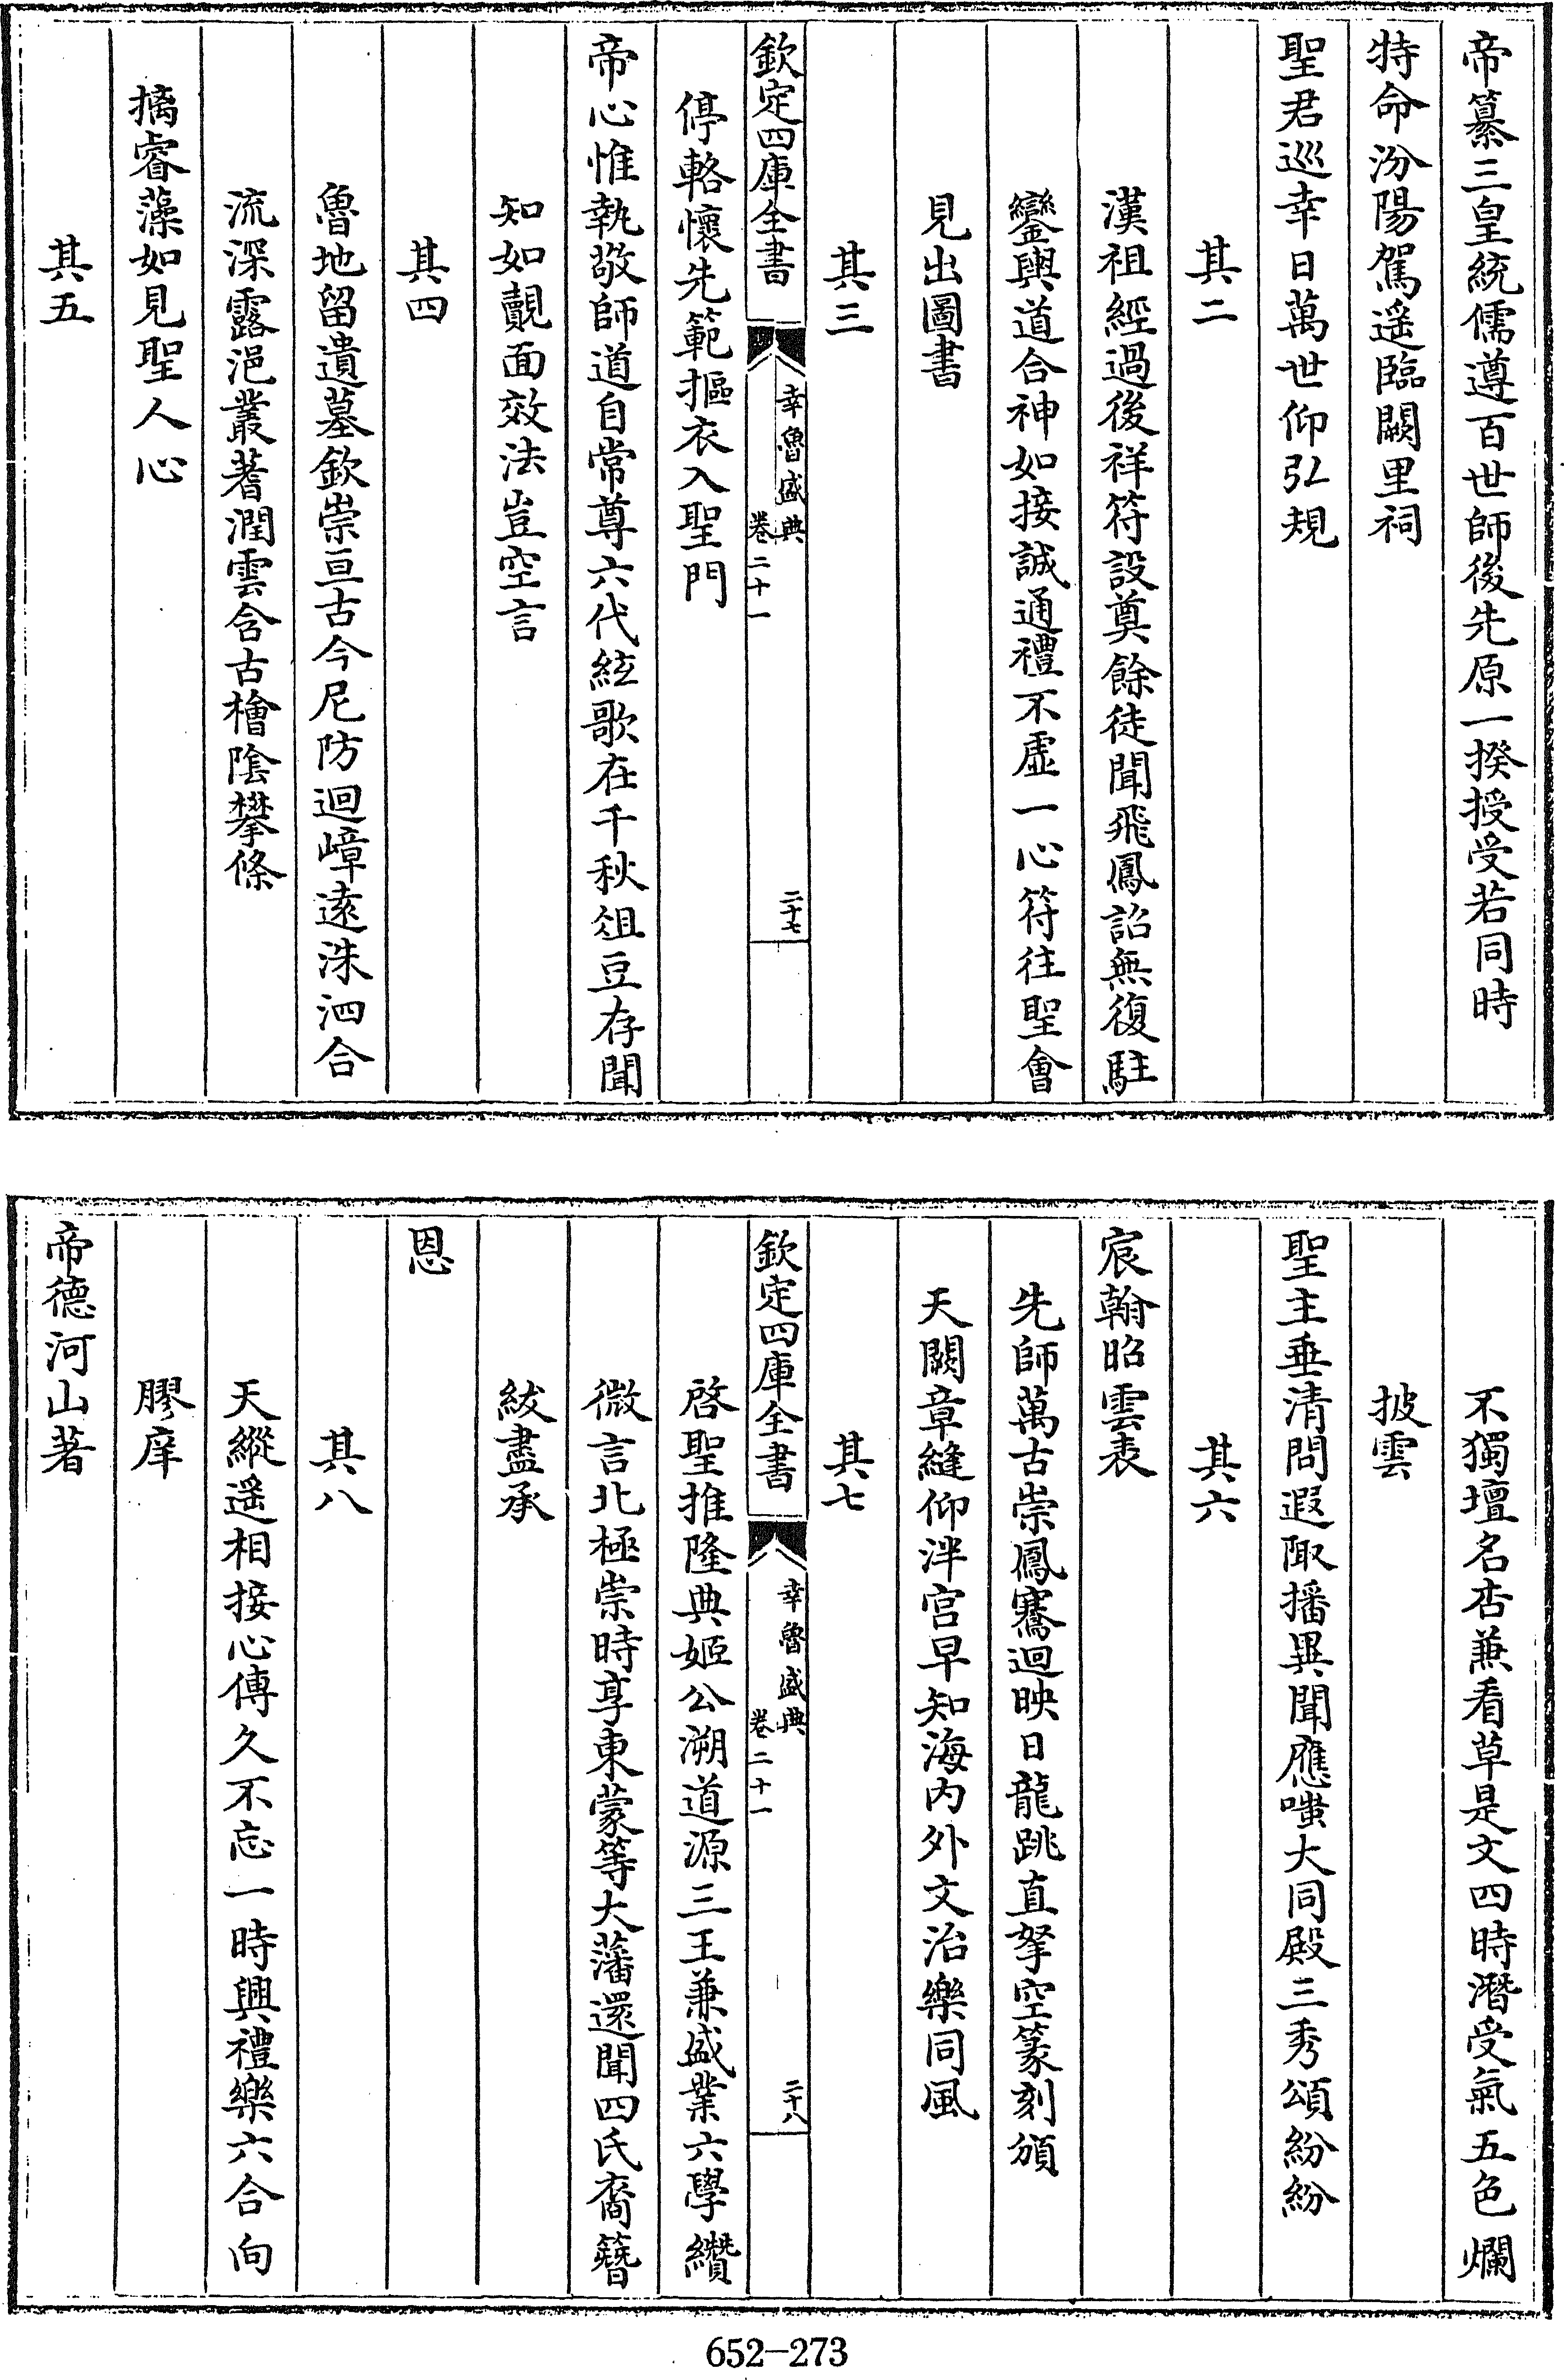 帝纂三皇統儒遵百世師後先原一揆授受若同時
特命汾陽駕遥臨闕里祠
聖君巡幸日萬世仰弘規
其二
漢祖經過後祥符設奠餘徒聞飛鳳詔無復駐
鑾輿道合神如接誠通禮不虚一心符往聖會
見出圖書
其三
欽定四庫全書
幸魯盛典
卷二十一
二十七
停輅懷先範摳衣入聖門
帝心惟執敬師道自常尊六代絃歌在千秋俎豆存聞
知如覿面效法豈空言
其四
魯地留遺墓欽崇亘古今尼防迴嶂遠洙泗合
流深露浥叢蓍潤雲含古檜陰攀條
摛睿藻如見聖人心
其五
不獨壇名杏兼看草是文四時潛受氣五色爛
披雲
聖主垂清問遐陬播異聞應嗤大同殿三秀頌紛紛
其六
宸翰昭雲表
先師萬古崇鳳騫迴映日龍跳直拏空篆刻頒
天闕章縫仰泮宫早知海内外文治樂同風
其七
欽定四庫全書
幸魯盛典
卷二十一
二十八
啓聖推隆典姬公溯道源三王兼盛業六學纘
微言北極崇時享東蒙等大藩還聞四氏裔簪
紱盡承
恩
其八
天縱遥相接心傳久不忘一時興禮樂六合向
膠庠
帝德河山著
652-273